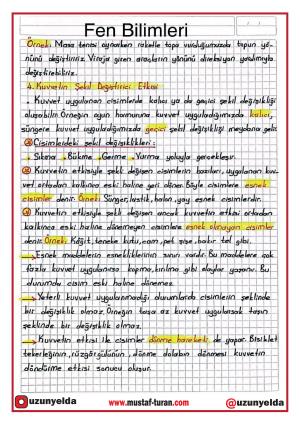 Fen Bilimleri
Örnek: Masa tenisi oynarken raketle topa vurduğumuzda topun yö-
nünü değiştiririz. Viraja giren araçların yönünü direksiyon yardımıyla
değiştirebiliriz.
4. Kuvvetin Şekil Değiştirici Etkisi
. Kuvvet uygulanan cisimlerde kalıcı ya da geçici şekil değişikliği
oluşabilir. Örneğin oyun hamuruna kuvvet uyguladığımızda kalıcı,
süngere kuvvet uyguladığımızda geçici şekil değişikliği meydana gelir.
Cisimlerdeki şekil değişiklikleri:
. Sıkma . Bükme . Germe . Vurma yoluyla gerçekleşir.
Kuvvetin etkisiyle şekil değişen cisimlerin bazıları, uygulanan kuv-
vet ortadan kalkınca eski haline geri döner. Böyle cisimlere esnek
cisimler denir. Örnek: Sünger, lastik, balon, yay esnek cisimlerdir.
Kuvvetin etkisiyle şekli değişen ancak kuvvetin etkisi ortadan
kalkınca eski haline dönemeyen cisimlere esnek olmayan cisimler
denir. Örnek: Kağıt, teneke kutu, cam, pet şişe, bakır tel gibi.
Esnek maddelerin esnekliklerinin sınırı vardır. Bu maddelere çok
fazla kuvvet uygulanırsa kopma, kırılma gibi olaylar yaşanır. Bu
durumda cisim eski haline dönemez.
Yeterli kuvvet uygulanmadığı durumlarda cisimlerin şeklinde
bir değişiklik olmaz. Örneğin bir taşa kuvvet uygularsak taşın
şeklinde bir değişiklik olmaz.
Kuvvetin etkisi ile cisimler dönme hareketi de yapar. Bisiklet
tekerleğinin, rüzgâr gülünün, dönme dolabın dönmesi kuvvetin
döndürme etkisi sonucu oluşur.
uzunyelda
www.mustaf-turan.com
@uzunyelda